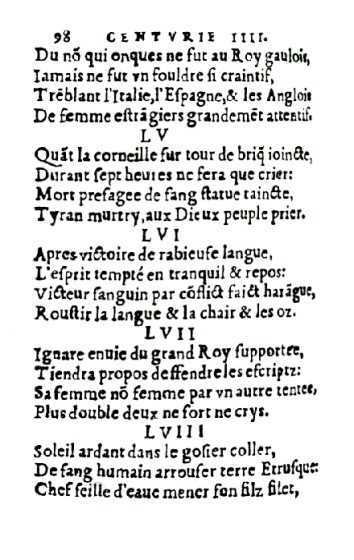 98 CENTVRIE IIII.
Du nõ qui onques ne fut au Roy gaulois,
Iamais ne fut vn fouldre ſi craintif,
Trẽblant l'Italie, l'Eſpagne, & les Anglois
De femme eſtrãgiers grandemẽt attentif.
LV
Quãt la corneille ſur tour de briq̃ ioincte,
Durant ſept heures ne fera que crier:
Mort preſagee de ſang ſtatue taincte,
Tyran murtry, aux Dieux peuple prier.
LVI
Apres victoire de rabieuſe langue,
L'eſprit tempté en tranquil & repos:
Victeur ſanguin par cõflict faict harãgue,
Rouſtir la langue & la chair & les oz.
LVII
Ignare enuie du grand Roy ſupportee,
Tiendra propos deffendre les eſcriptz:
Sa femme nõ femme par vn autre tentee,
Plus double deux ne fort ne crys.
LVIII
Soleil ardant dans le goſier coller,
De ſang humain arrouſer terre Etruſque:
Chef ſeille d'eaue mener ſon filz filer,